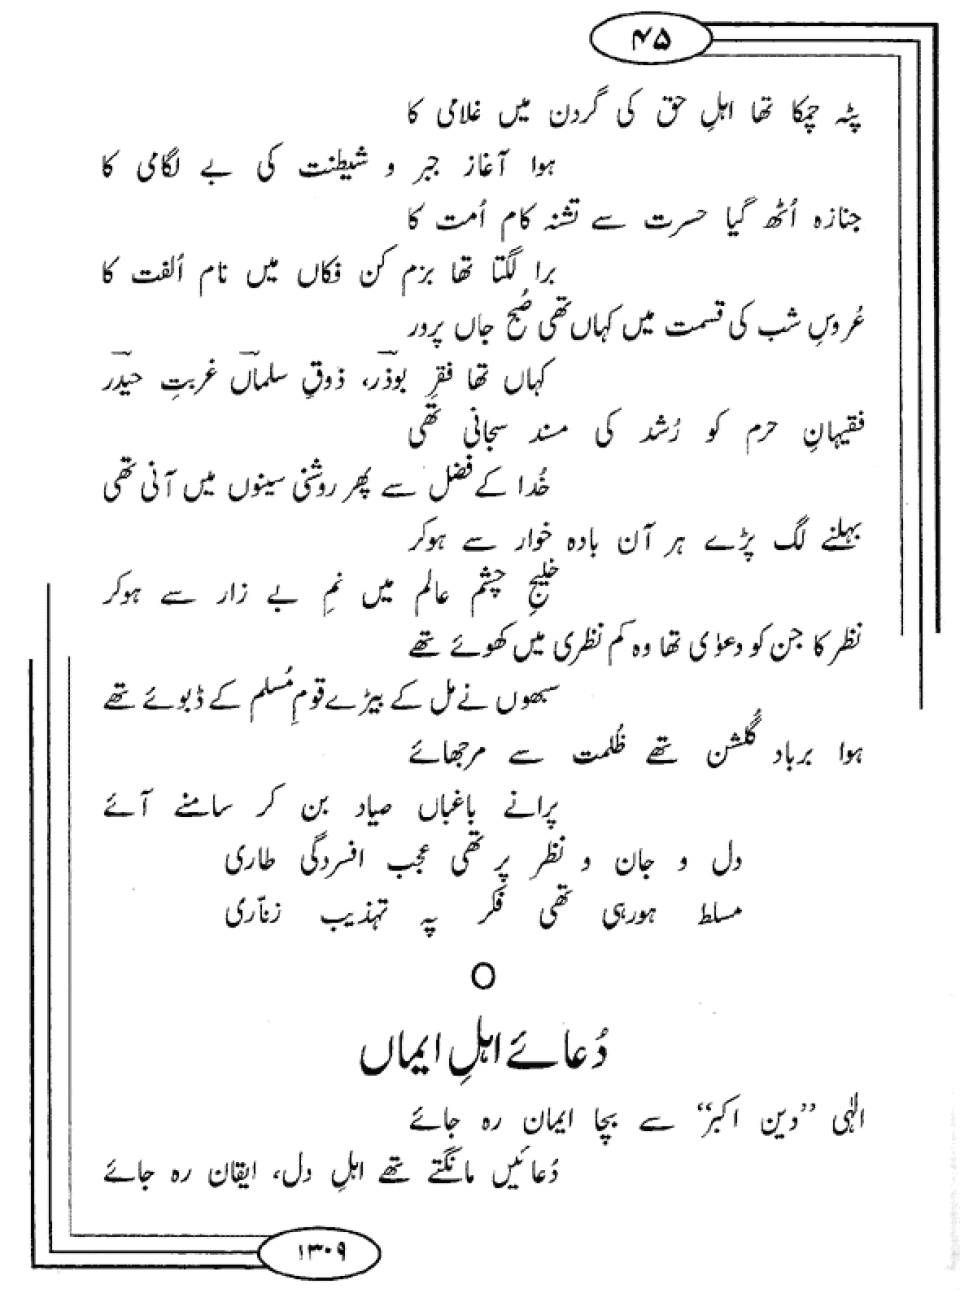 ۴۵
پٹہ چمکا تھا اہلِ حق کی گردن میں غلامی کا
ہوا آغاز جبر و شیطنت کی بے لگامی کا
جنازہ اُٹھ گیا حسرت سے تشنہ کام اُمت کا
برا لگتا تھا بزم کن فکاں میں نام اُلفت کا
عُروسِ شب کی قسمت میں کہاں تھی صُبح جاں پرور
کہاں تھا فقرِ بوذرؓ، ذوقِ سلماںؓ غربتِ حیدرؓ
فقیہانِ حرم کو رُشد کی مسند سجانی تھی
خُدا کے فضل سے پھر روشنی سینوں میں آنی تھی
بہلنے لگ پڑے ہر آن بادہ خوار سے ہوکر
خلیجِ چشم عالم میں نمِ بے زار سے ہوکر
نظر کا جن کو دعوٰی تھا وہ کم نظری میں کھوئے تھے
سبھوں نے مل کے بیڑے قومِ مُسلم کے ڈبوئے تھے
ہوا برباد گُلشن تھے ظُلمت سے مرجھائے
پرانے باغباں صیاد بن کر سامنے آئے
دل و جان و نظر پر تھی عجب افسردگی طاری
مسلط ہورہی تھی فکر پہ تہذیب زنّاری
O
دُعائے اہلِ ایماں
الٰہی ”دین اکبر“ سے بچا ایمان رہ جائے
دُعائیں مانگتے تھے اہلِ دل، ایقان رہ جائے
۱۳۰۹